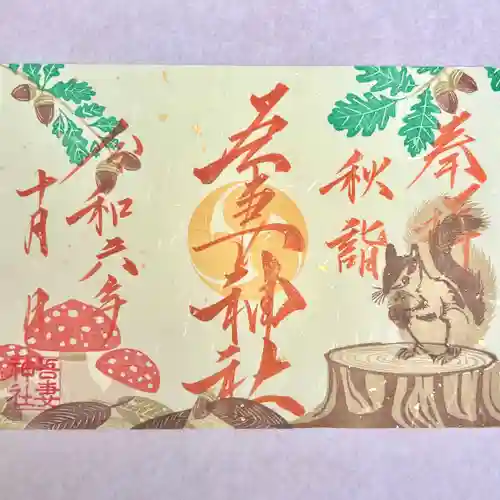 奉拝
秋詣
吾妻神社
令和六年
十月 日
吾妻
神社